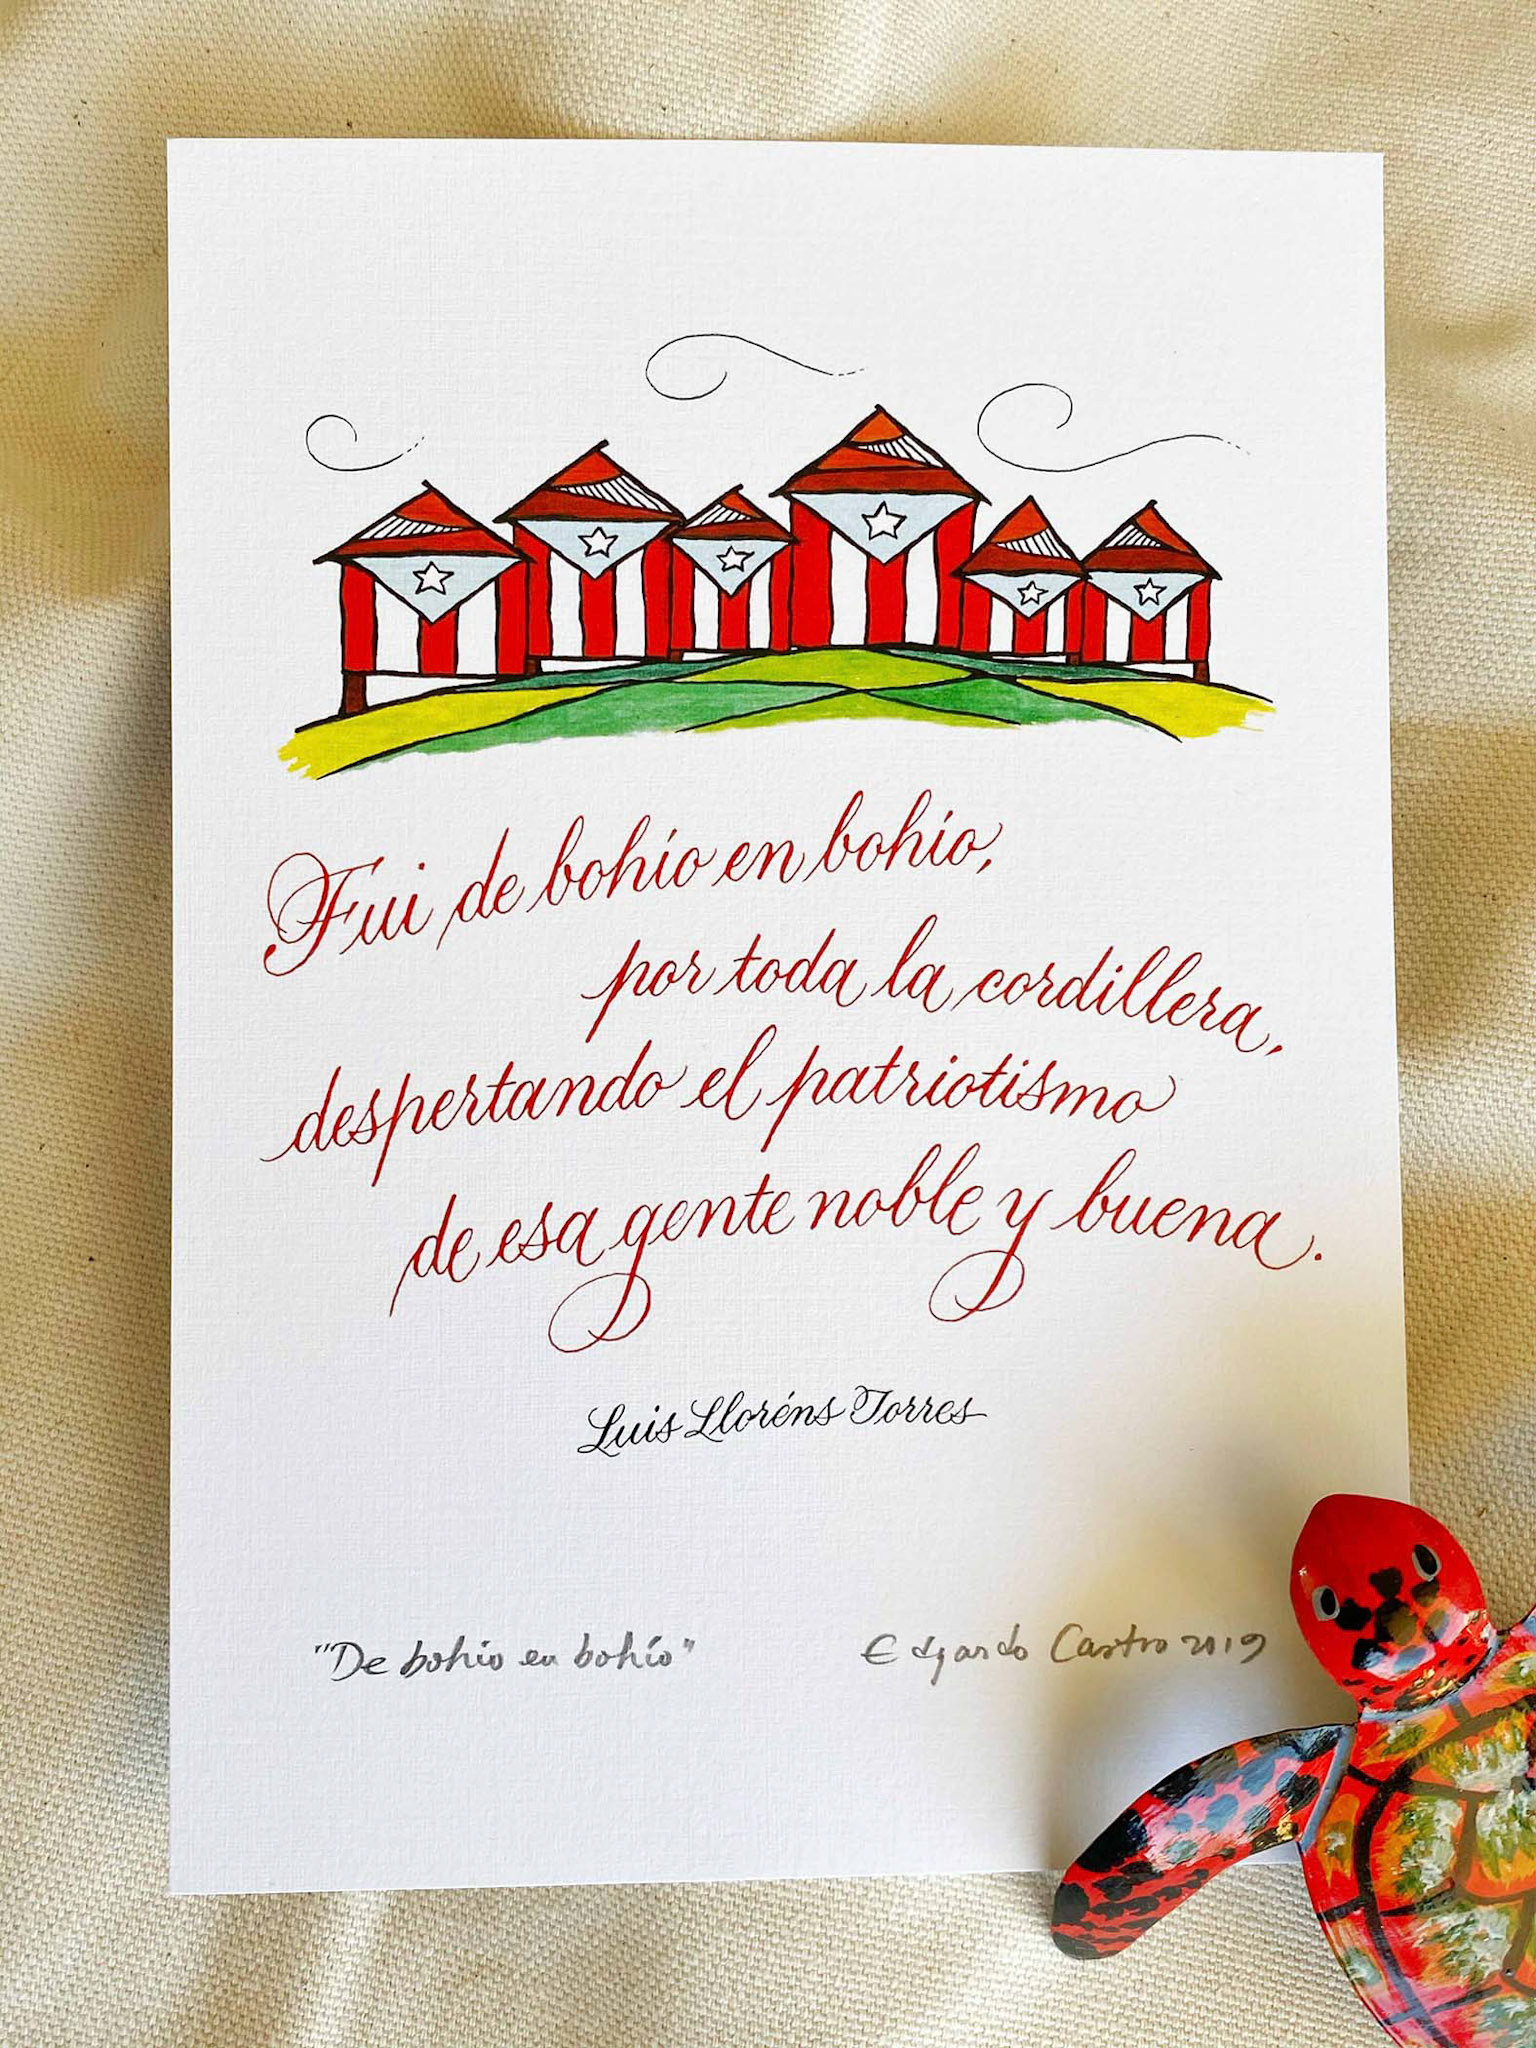 Fui de bohío en bohío,
por toda la cordillera,
despertando el patriotismo
de esa gente noble y buena.
Luis Lloréns Torres
"De bohío en bohío"
Edgardo Castro 2019